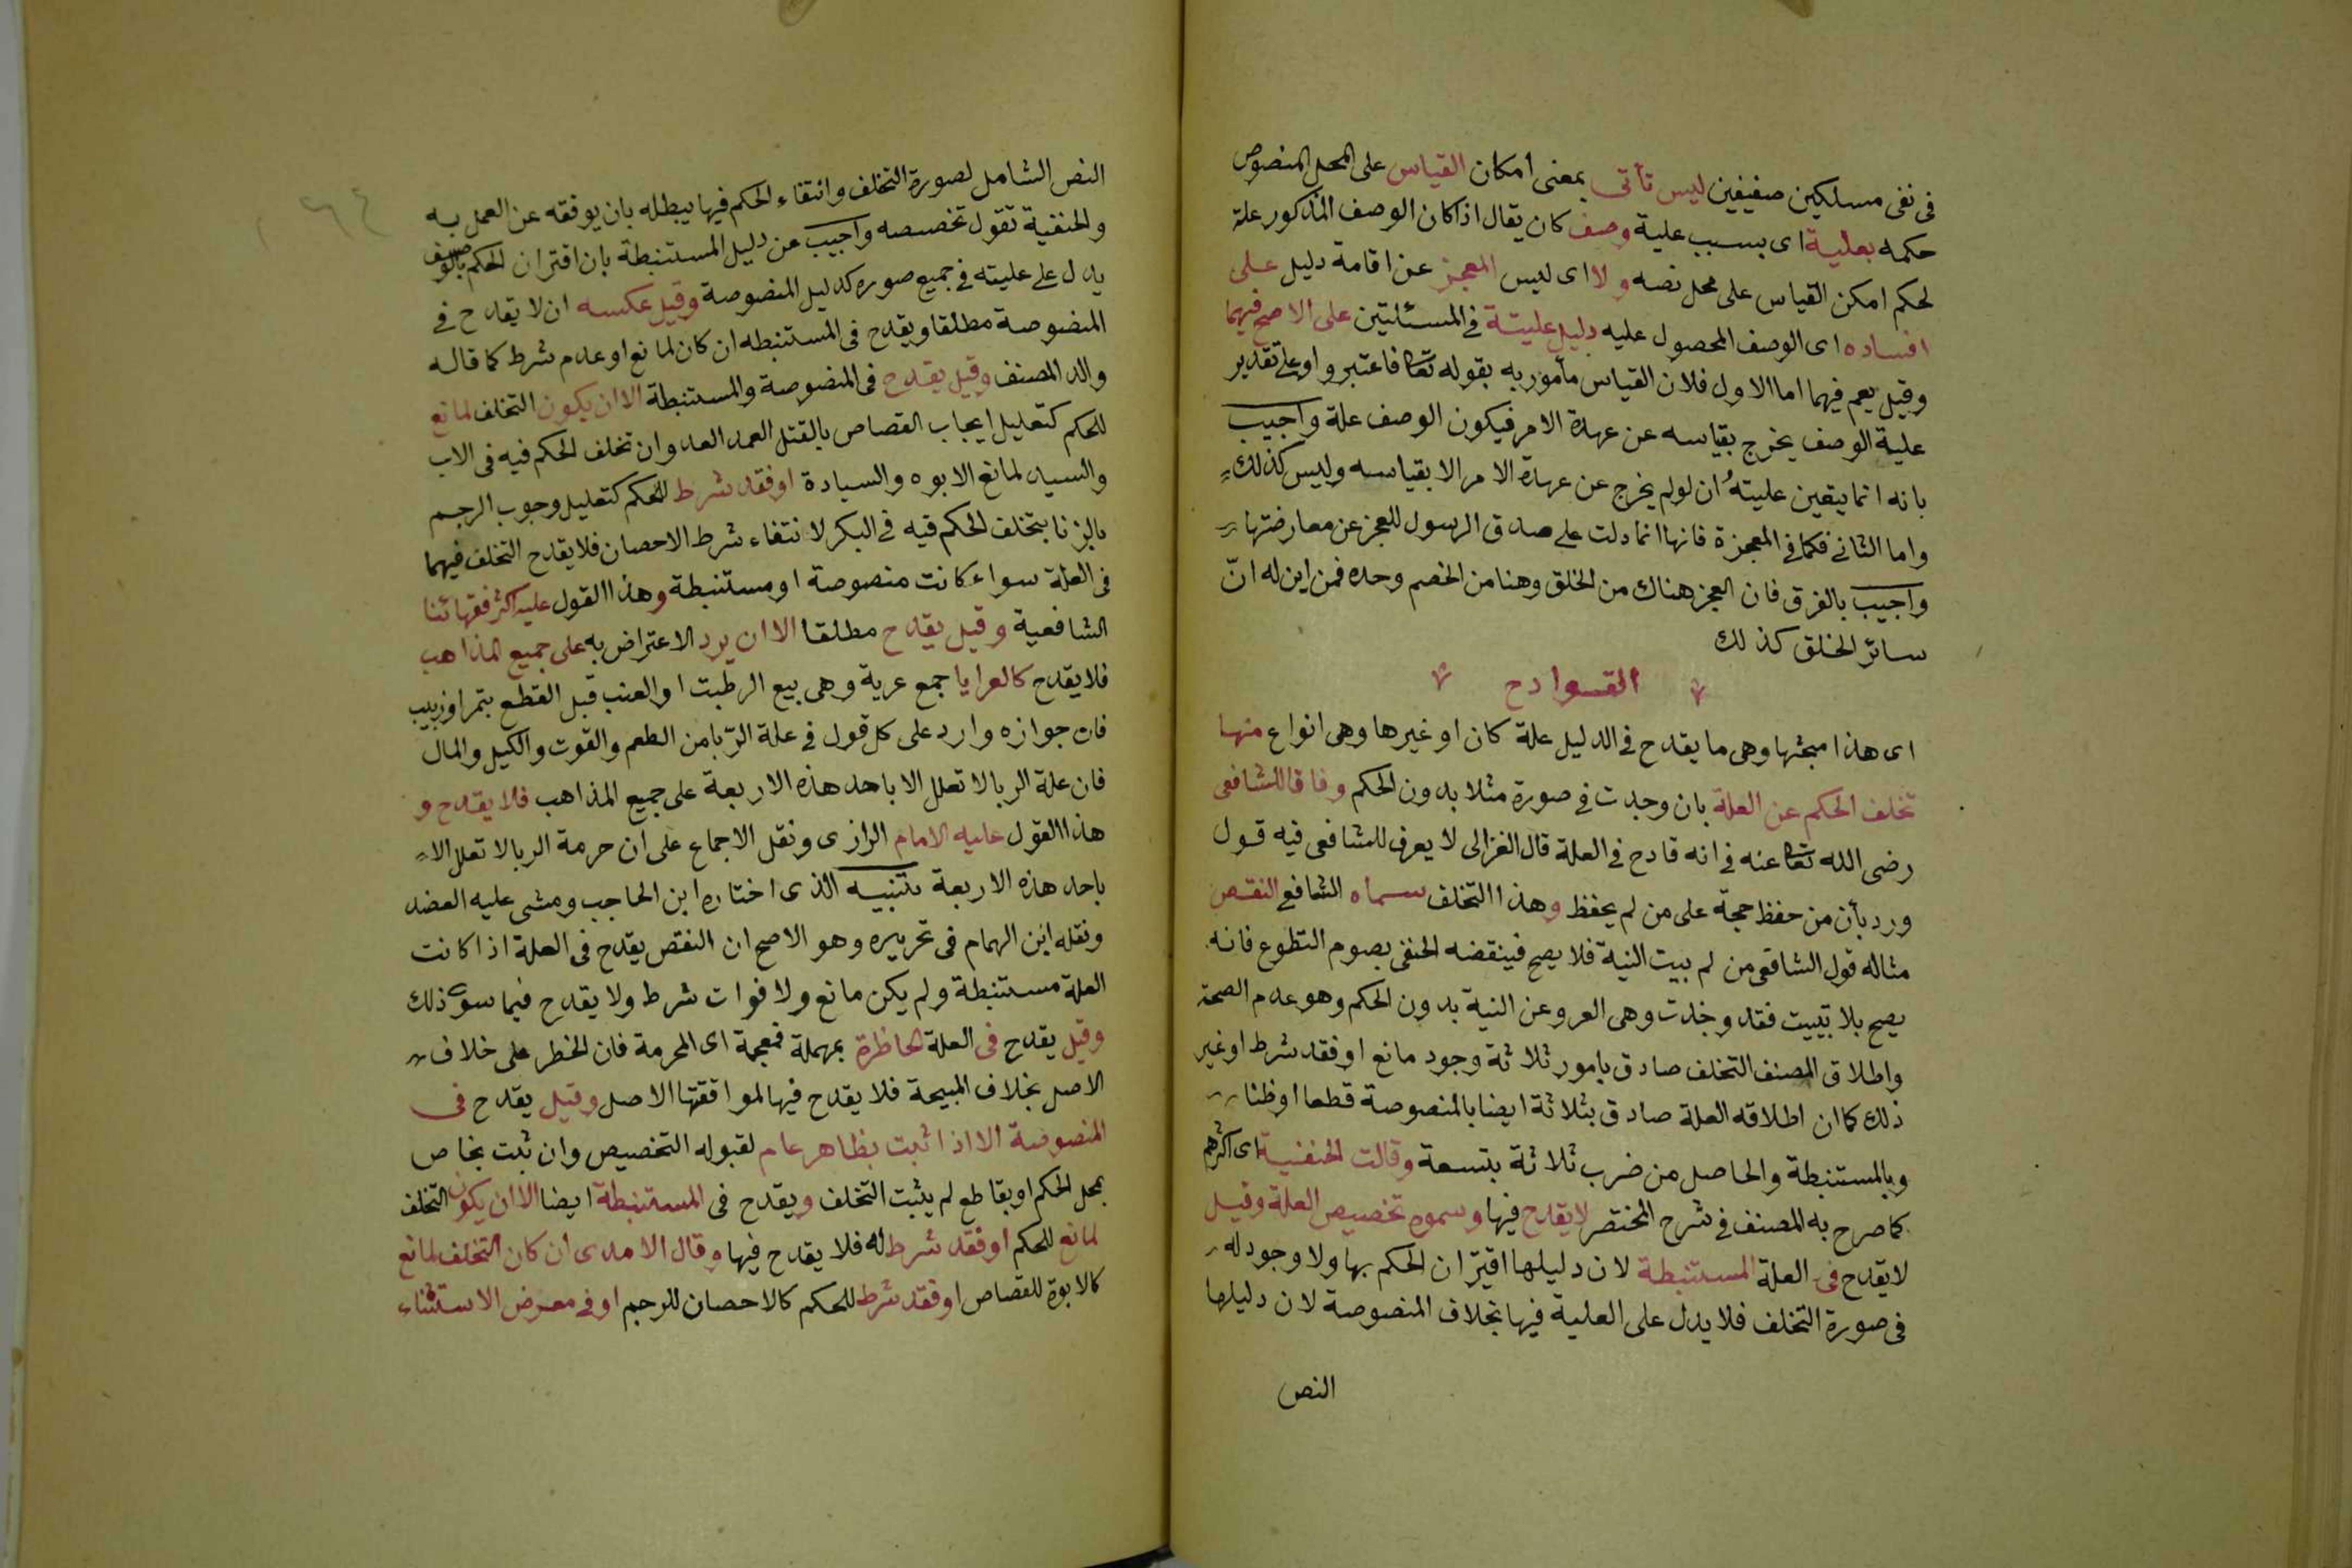 فى نفى مسلكين ضعيفين ليس تأتى بمعنى امكان القياس على المحل المنصوص
حكمه بعلية اى بسبب علية وصف كان يقال اذا كان الوصف المذكور علة
لحكم امكن القياس على محل نصه ولا اى ليس المعجز عن اقامة دليل على
افساده اى الوصف المحصول عليه دليل عليتة فى المسئلتين على الاصح فيهما
وقيل يعم فيهما اما الاول فلان القياس مأمور به بقوله تعا فاعتبروا وعلى تقدير
علية الوصف يخرج بقياسه عن عهدة الامر فيكون الوصف علة واجيب
بانه انما يتعين عليته ان لو لم يخرج عن عهدة الامر الا بقياسه وليس كذلك
واما الثانى فكما فى المعجزة فانها انما دلت على صدق الرسول للعجز عن معارضتها
واجيب بالفرق فان العجز هناك من الخلق وهنا من الخصم وحده فمن اين له انّ
سائر الخلق كذلك
القوادح
اى هذا مبحثها وهى ما يقدح فى الدليل علة كان او غيرها وهى انواع منها
تخلف الحكم عن العلة بان وجدت فى صورة مثلا بدون الحكم وفاقا للشافعى
رضى الله تعا عنه فى انه قادح فى العلة قال الغزالى لا يعرف للشافعى فيه قول
ورد بأن من حفظ حجة على من لم يحفظ وهذا التخلف سماه الشافع النقص
مثاله قول الشافعى من لم يبيت النية فلا يصح فينقضه الحنفى بصوم التطوع فانه
يصح بلا تبييت فقد وجدت وهى العرو عن النية بدون الحكم وهو عدم الصحة
واطلاق المصنف التخلف صادق بامور ثلاثة وجود مانع او فقد شرط او غير
ذلك كما ان اطلاقه العلة صادق بثلاثة ايضا بالمنصوصة قطعا او ظنا
وبالمستنبطة والحاصل من ضرب ثلاثة بتسعة وقالت الحنفية اى اكثرهم
كما صرح به المصنف فى شرح المختصر لا يقدح فيها وسموه تخصيص العلة وقيل
لا يقدح فى العلة المستنبطة لان دليلها اقتران الحكم بها ولا وجود له
فى صورة التخلف فلا يدل على العلية فيها بخلاف المنصوصة لان دليلها
النص
النص الشامل لصورة التخلف وانتفاء الحكم فيها يبطله بان يوقفه عن العمل به
والحنفية تقول تخصصه واجيب عن دليل المستنبطة بان اقتران الحكم بالوصف
يدل على عليته فى جميع صوره كدليل المنصوصة وقيل عكسه ان لا يقدح فى
المنصوصة مطلقا ويقدح فى المستنبطه ان كان لمانع او عدم شرط كما قاله
والد المصنف وقيل يقدح فى المنصوصة والمستنبطة الا ان يكون التخلف لمانع
للحكم كتعليل ايجاب القصاص بالقتل العمد العدوان تخلف الحكم فيه فى الاب
والسيد لمانع الابوه والسيادة او فقد شرط للحكم كتعليل وجوب الرجم
بالزنا يتخلف الحكم فيه فى البكر لانتفاء شرط الاحصان فلا يقدح التخلف فيهما
فى العلة سواء كانت منصوصة او مستنبطة وهذا القول عليه اكثر فقهائنا
الشافعية وقيل يقدح مطلقا الا ان يرد الاعتراض به على جميع المذاهب
فلا يقدح كالعرايا جمع عرية وهى بيع الرطبت او العنب قبل القطع بتمر او زبيب
فان جوازه وارد على كل قول فى علة الرّبا من الطعم والقوت والكيل والمال
فان علة الربا لا تعلل الا باحد هذه الاربعة على جميع المذاهب فلا يقدح و
هذا القول عليه الامام الرازى ونقل الاجماع على ان حرمة الربا لا تعلل الا
باحد هذه الاربعة تنبيه الذى اختاره ابن الحاجب ومشى عليه العضد
ونقله ابن الهمام فى تحريره وهو الاصح ان النقص يقدح فى العلة اذا كانت
العلة مستنبطة ولم يكن مانع ولا فوات شرط ولا يقدح فيما سوى ذلك
وقيل يقدح فى العلة الحاظرة بمهملة فمعجمة اى المحرمة فان الخطر على خلاف
الاصل بخلاف المبيحة فلا يقدح فيها لموافقتها الاصل وقيل يقدح فى
المنصوصة الا اذا ثبت بظاهر عام لقبوله التخصيص وان ثبت بخاص
بمحل الحكم او بقاطع لم يثبت التخلف ويقدح فى المستنبطة ايضا الا ان يكون التخلف
لمانع للحكم او فقد شرط له فلا يقدح فيها وقال الامدى ان كان التخلف لمانع
كالابوة للقصاص او فقد شرط للحكم كالاحصان للرجم او فى معرض الاستثناء